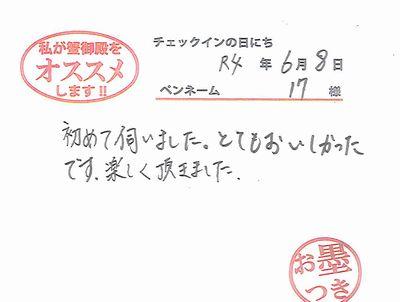 私が蟹御殿を
オススメ
します!!
チェックインの日にち
R4 年 6月 8日
ペンネーム 17 様
初めて伺いました。とてもおいしかった
です。楽しく頂きました.
お墨
つき